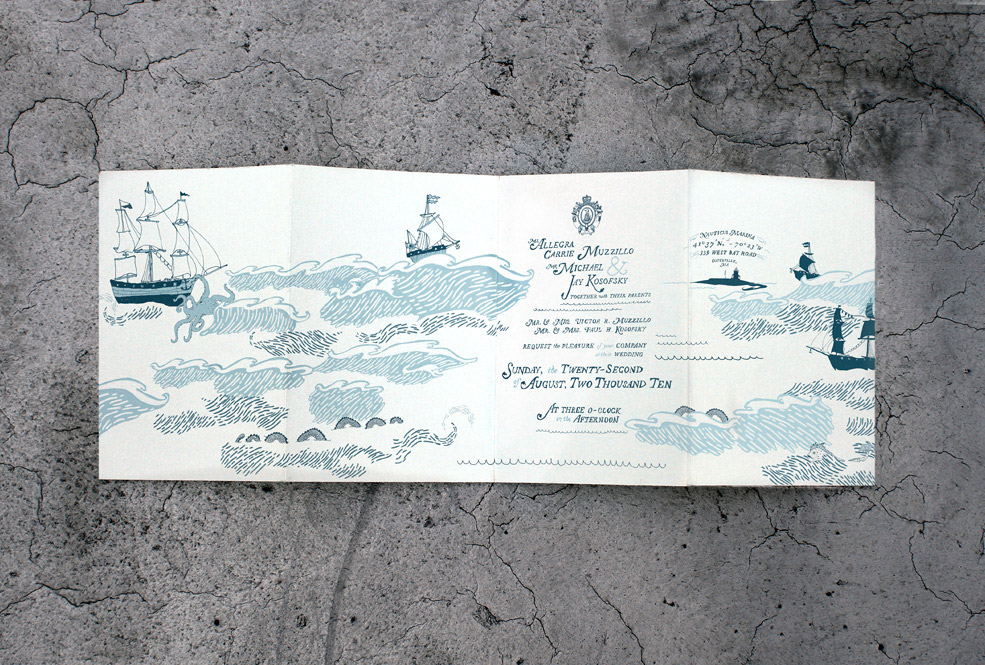 Ms. Allegra
Carrie Muzzillo
&
Mr. Michael
Jay Kosofsky
together with their parents
Mr. & Mrs. Victor R. Muzzillo
Mr. & Mrs. Paul H. Kosofsky
request the pleasure of your company
at their wedding
Sunday, the Twenty-Second
of August, Two Thousand Ten
At three o-clock
in the afternoon
Nauticus Marina
41°37'N, -70°23'W
339 West Bay Road
Osterville,
MA